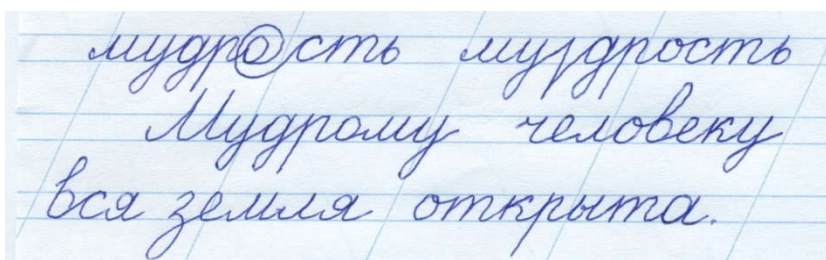 мудрость му/дрость
Мудрому человеку
вся земля открыта.